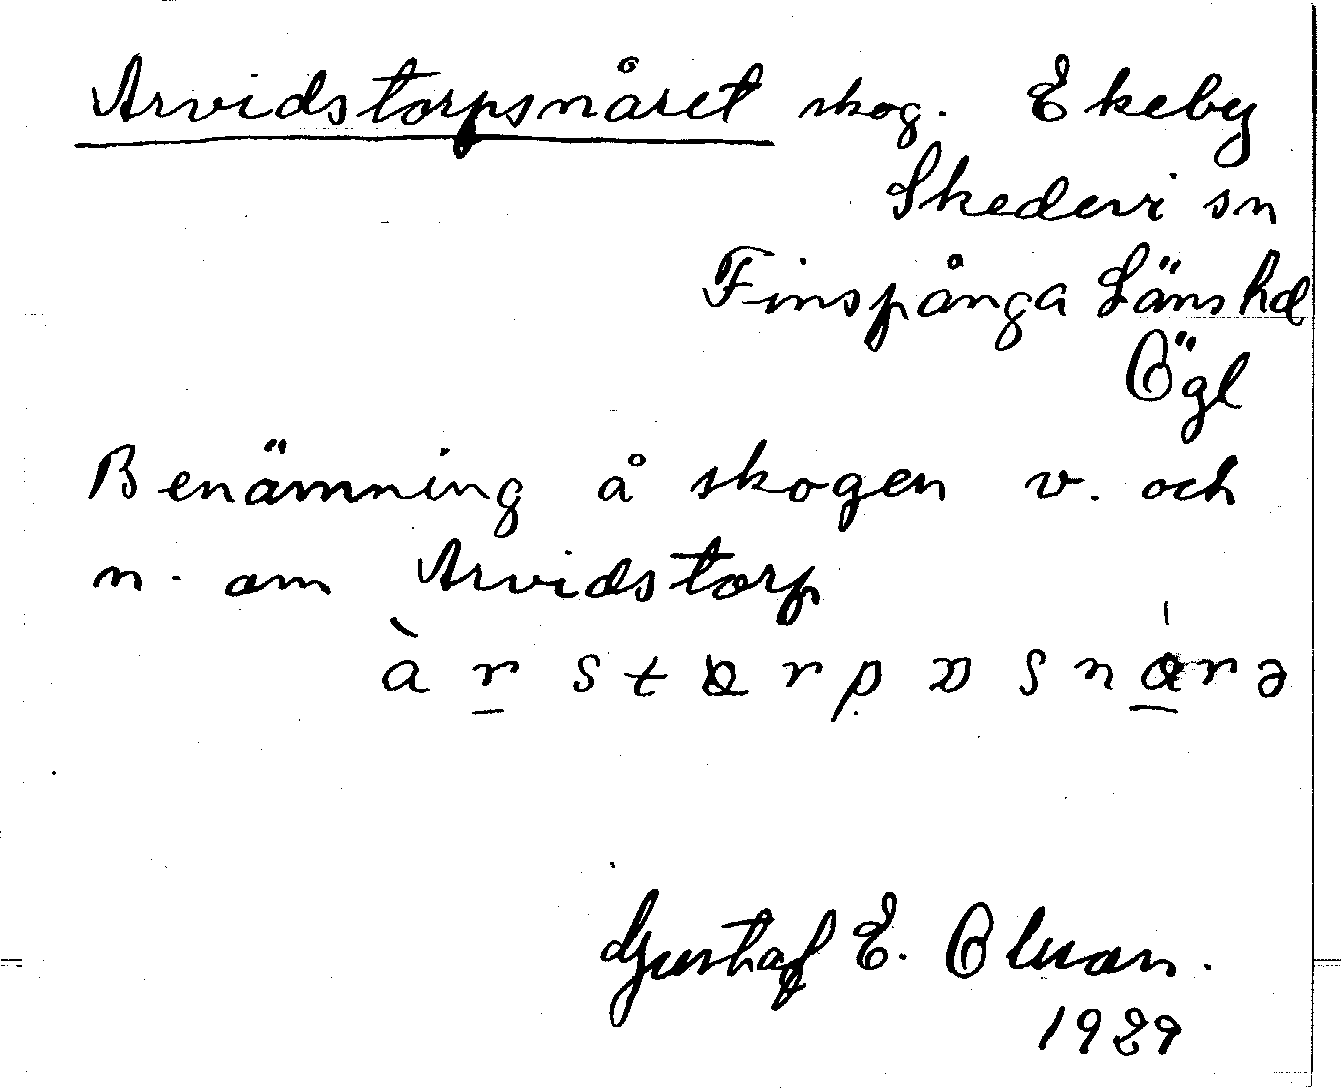 Arvidstorpsnåret skog. Ekeby
Skedevi sn
Finspånga Läns hd
Ögl
Benämning å skogen v. och
n. om Arvidstorp
Gustaf E. Olsson.
1929